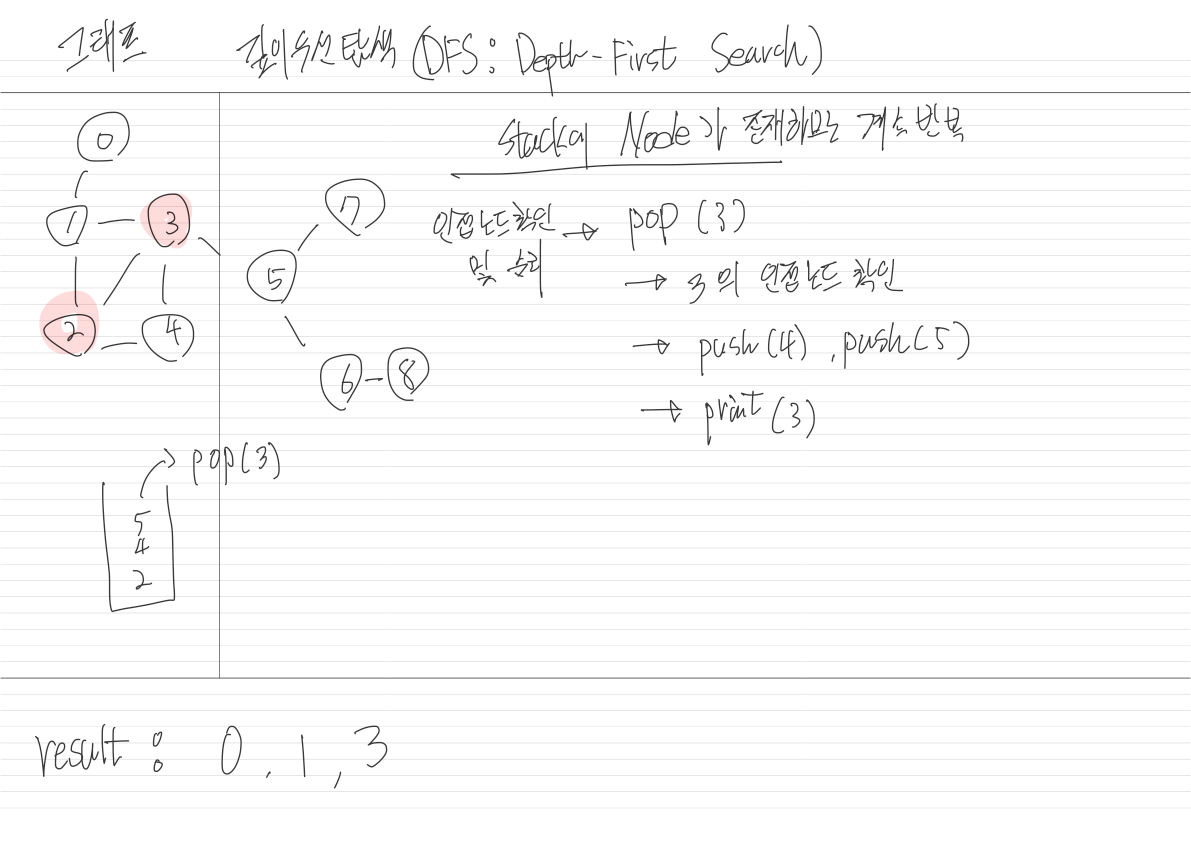 그래프
깊이우선탐색 (DFS: Depth-First Search)
0
1
3
2
4
5
7
6
8
Stack에 Node가 존재하므로 계속 반복
인접노드확인
및 순회
→ pop (3)
→ 3의 인접노드 확인
→ push(4), push(5)
→ print (3)
pop(3)
5
4
2
result : 0, 1, 3